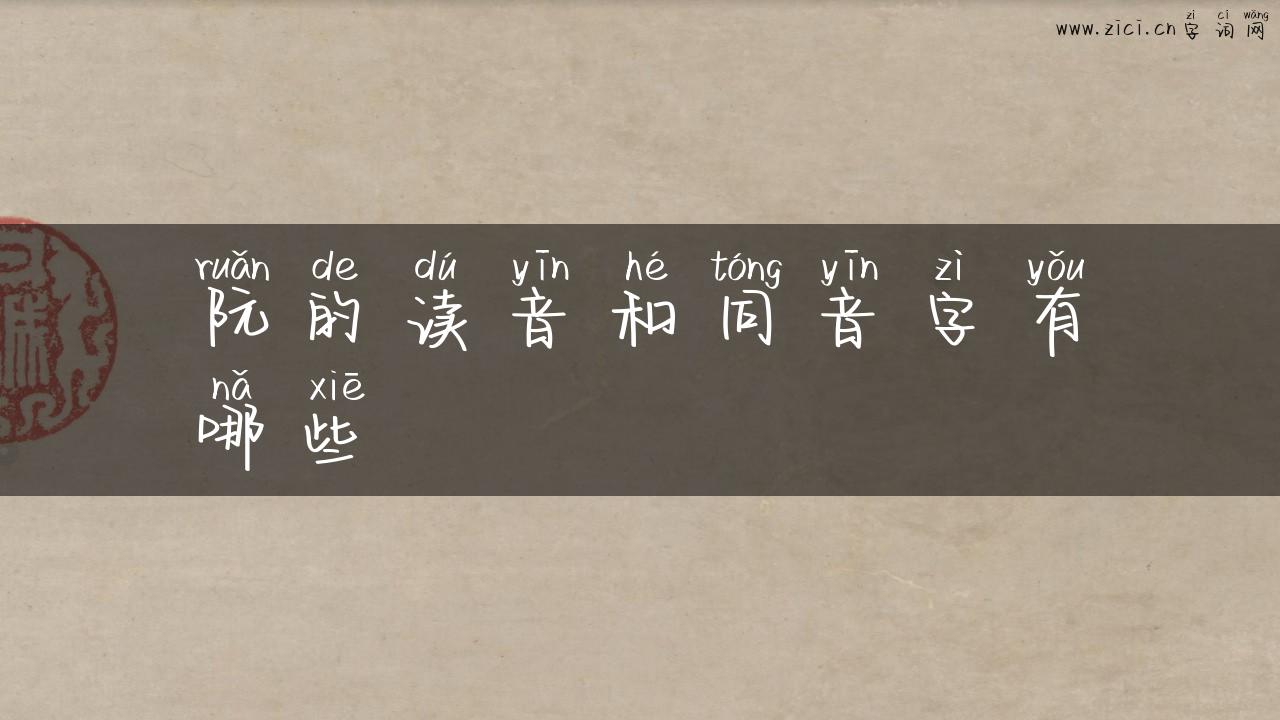 zì cí wǎng
www.zici.cn 字词网
ruǎn de dú yīn hé tóng yīn zì yǒu
阮的读音和同音字有
nǎ xiē
哪些